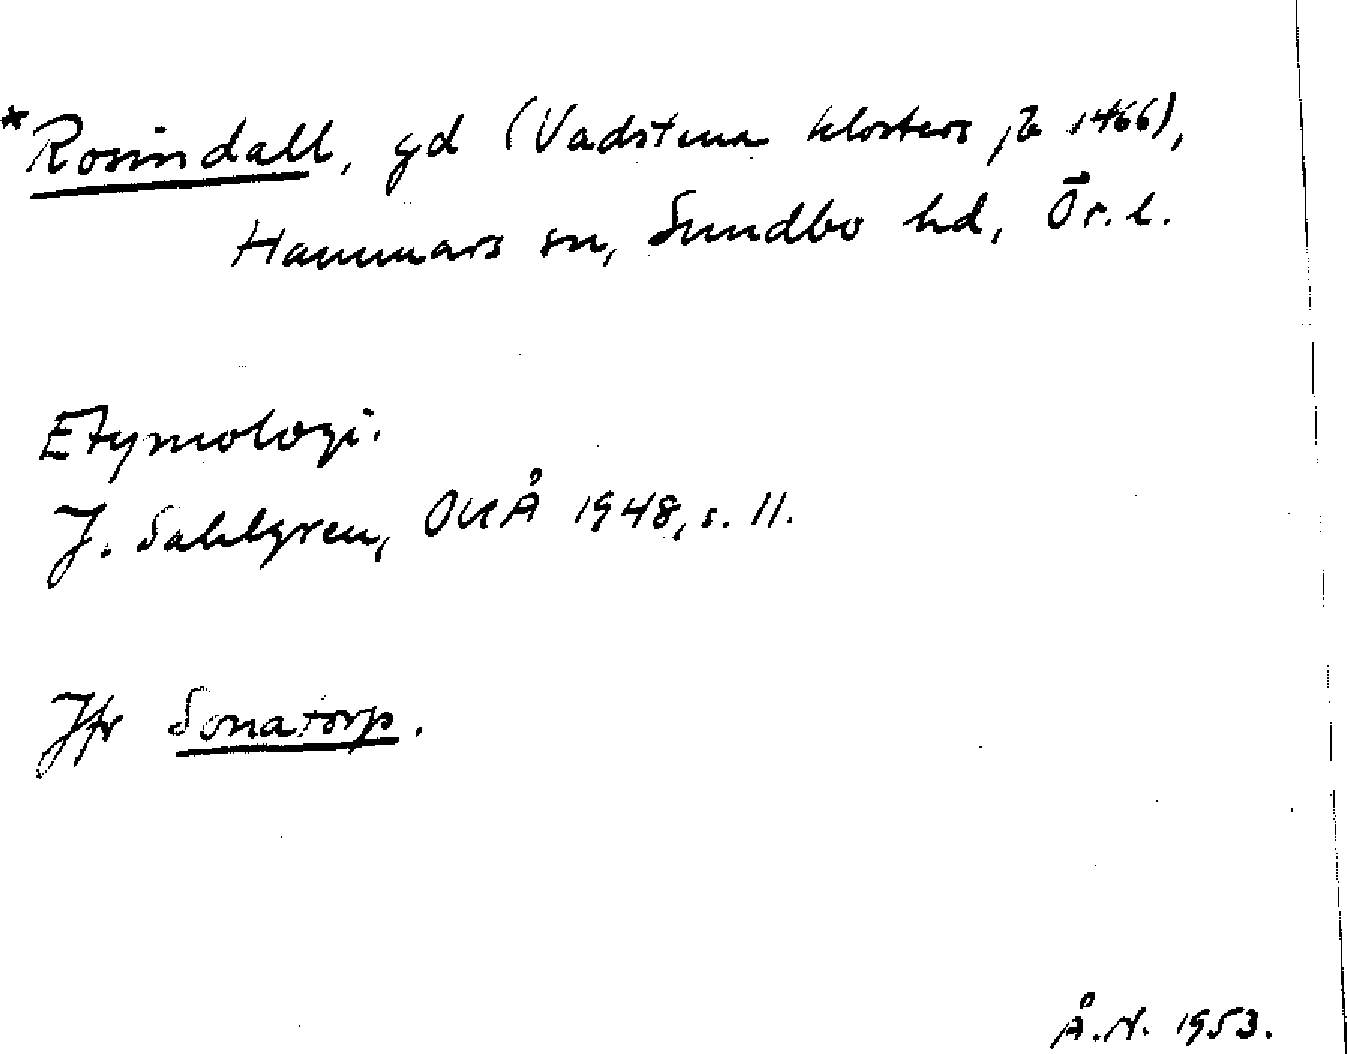 *Rosindall, gd (Vadstena klosters jb 1466),
Hammars sn, Sundbo hd, Ör. l.
Etymologi.
J. Sahlgren, OUÅ 1948, s. 11.
Jfr Sonatorp.
Å.N. 1953.